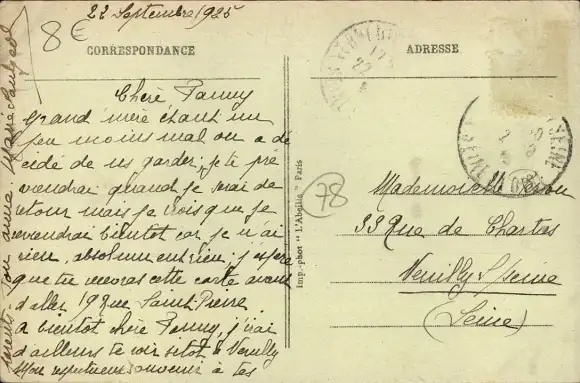 22 Septembre 1925
8€
CORRESPONDANCE
ADRESSE
Chère Fanny
Grand mère étant un
peu moins mal on a dé
cidé de us garder, je te pré
viendrai quand je serai de
retour mais je crois que je
reviendrai bientôt car je n'ai
rien, absolument rien; j'espère
que tu recevras cette carte avant
d'aller 19 Rue Saint-Pierre
A bientôt chère Fanny, j'irai
d'ailleurs te voir sitôt à Neuilly
Mon respectueux souvenir à tes
parents. Ton amie. Marie
Imp.-phot "L'Abeille" Paris
78
Mademoiselle
33 Rue de Chartres
Neuilly s/ Seine
(Seine)